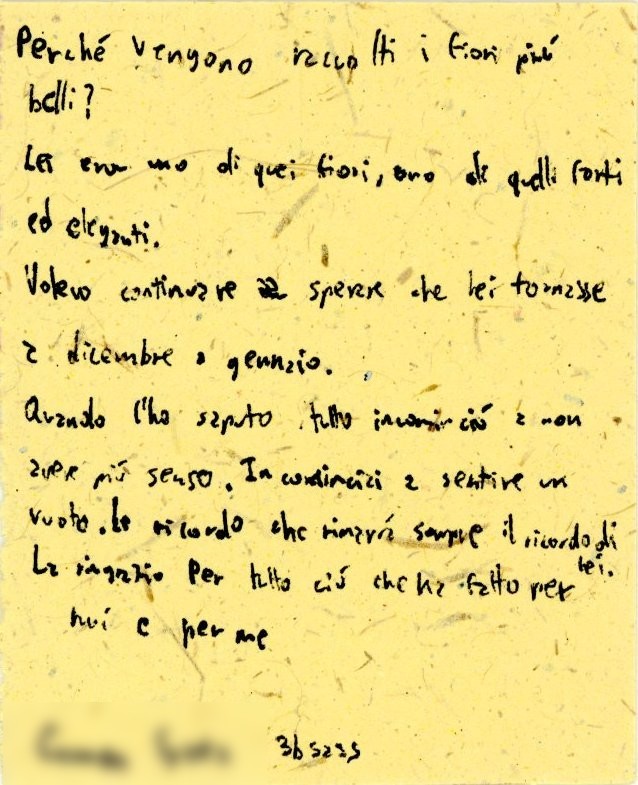 Perché vengono raccolti i fiori più
belli?
Lei era uno di quei fiori, uno di quelli forti
ed eleganti.
Volevo continuare a sperare che lei tornasse
a dicembre a gennaio.
Quando l'ho saputo tutto incominciò a non
aver più senso. Incominciai a sentire un
vuoto. Le ricordo che rimarrà sempre il ricordo di
lei.
La ringrazio Per tutto ciò che ha fatto per
noi e per me
3b